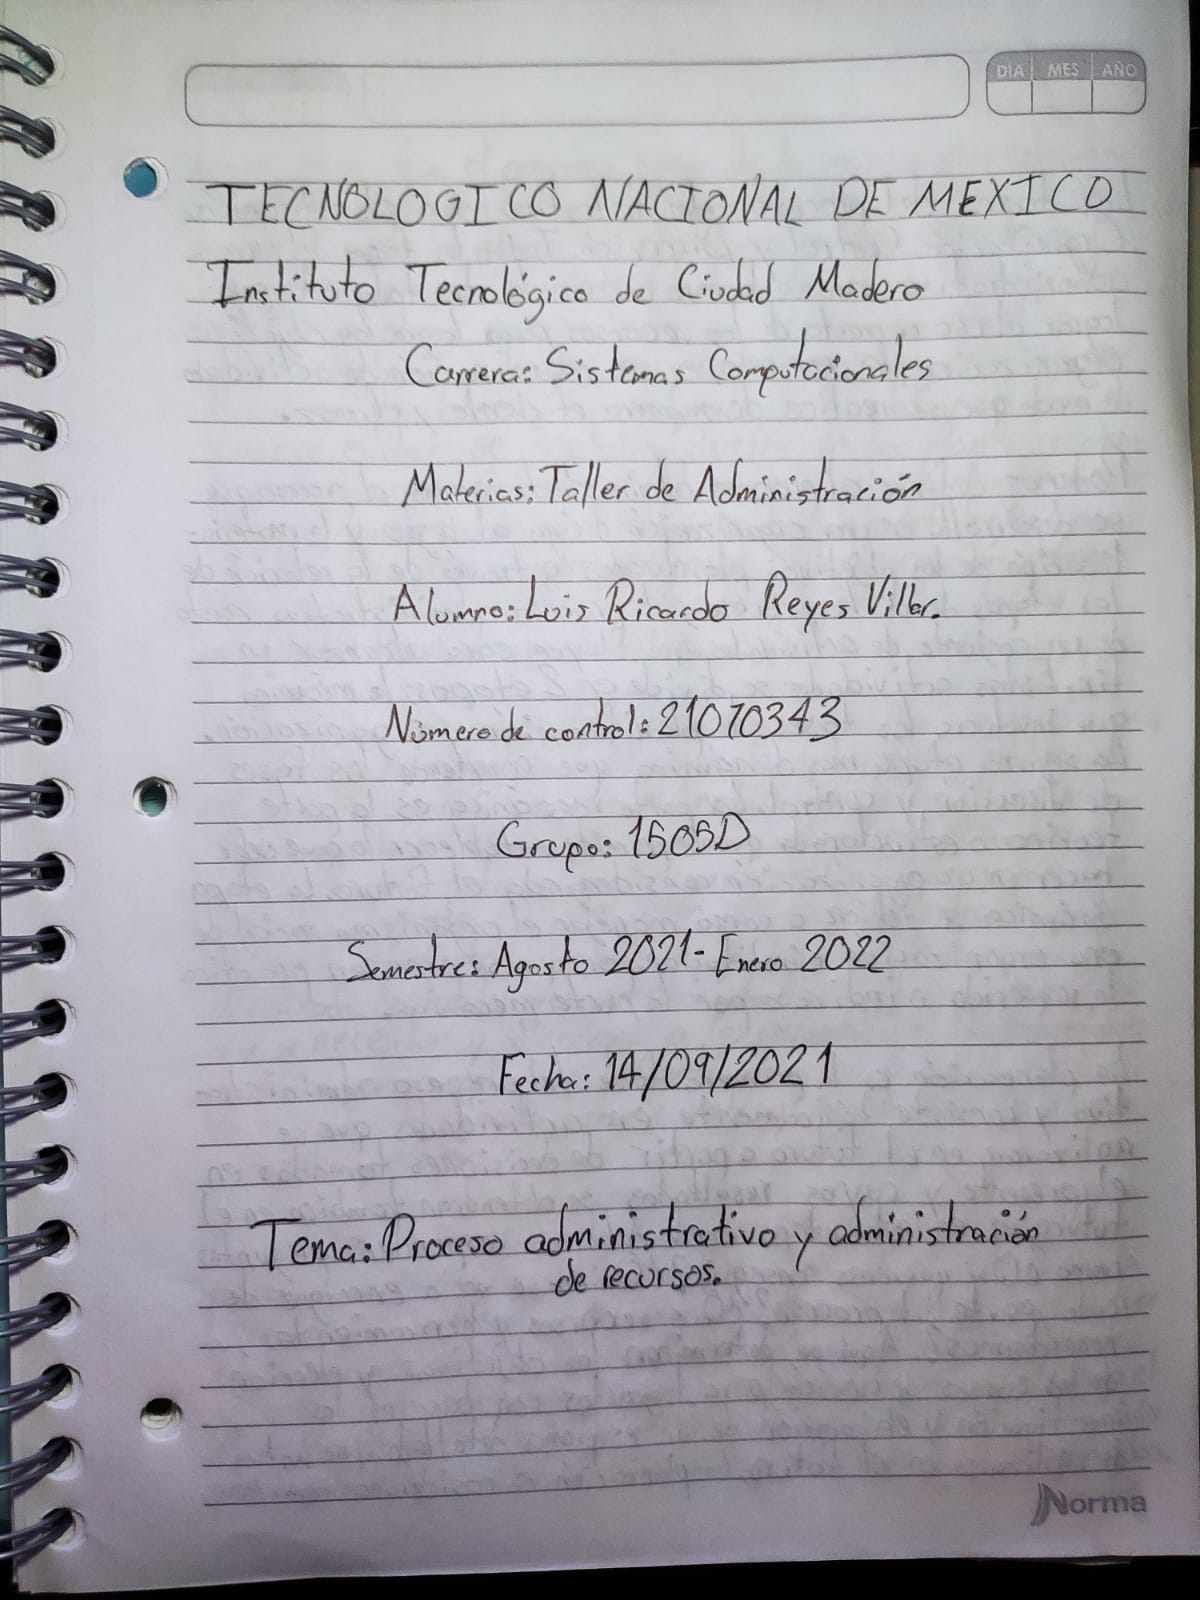 DÍA MES AÑO
TECNOLOGICO NACIONAL DE MEXICO
Instituto Tecnológico de Ciudad Madero
Carrera: Sistemas Computacionales
Materias: Taller de Administración
Alumno: Luis Ricardo Reyes Villar.
Número de control: 21070343
Grupo: 1505D
Semestre: Agosto 2021- Enero 2022
Fecha: 14/09/2021
Tema: Proceso administrativo y administración
de recursos.
Norma